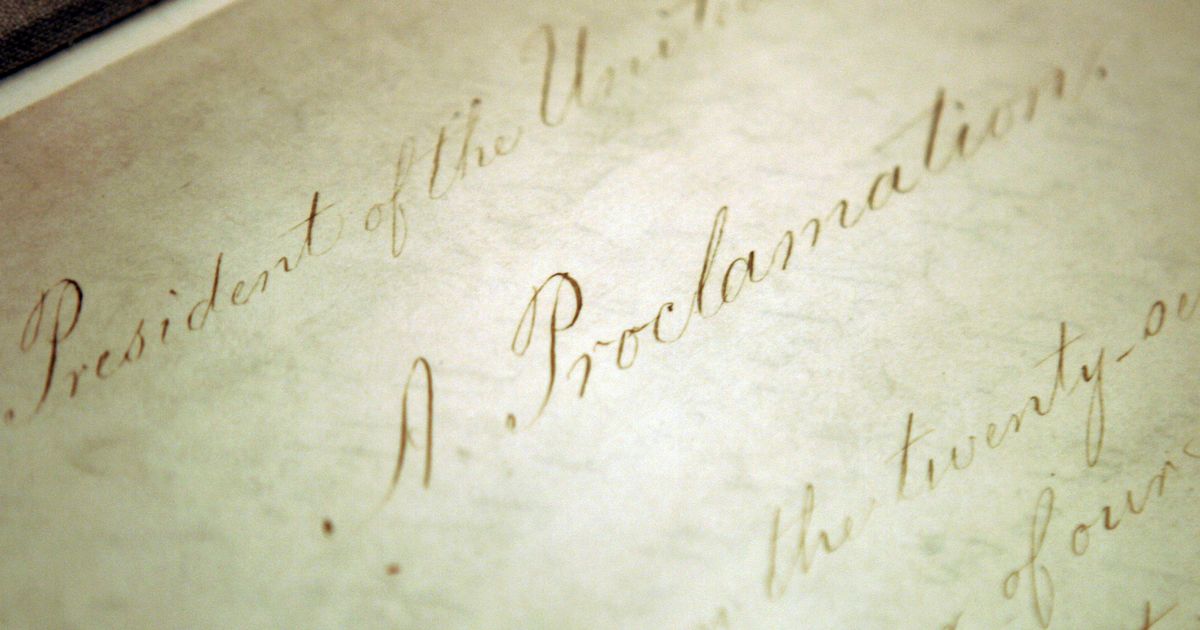 President of the Unite
A Proclamation.
the twenty-se
of our